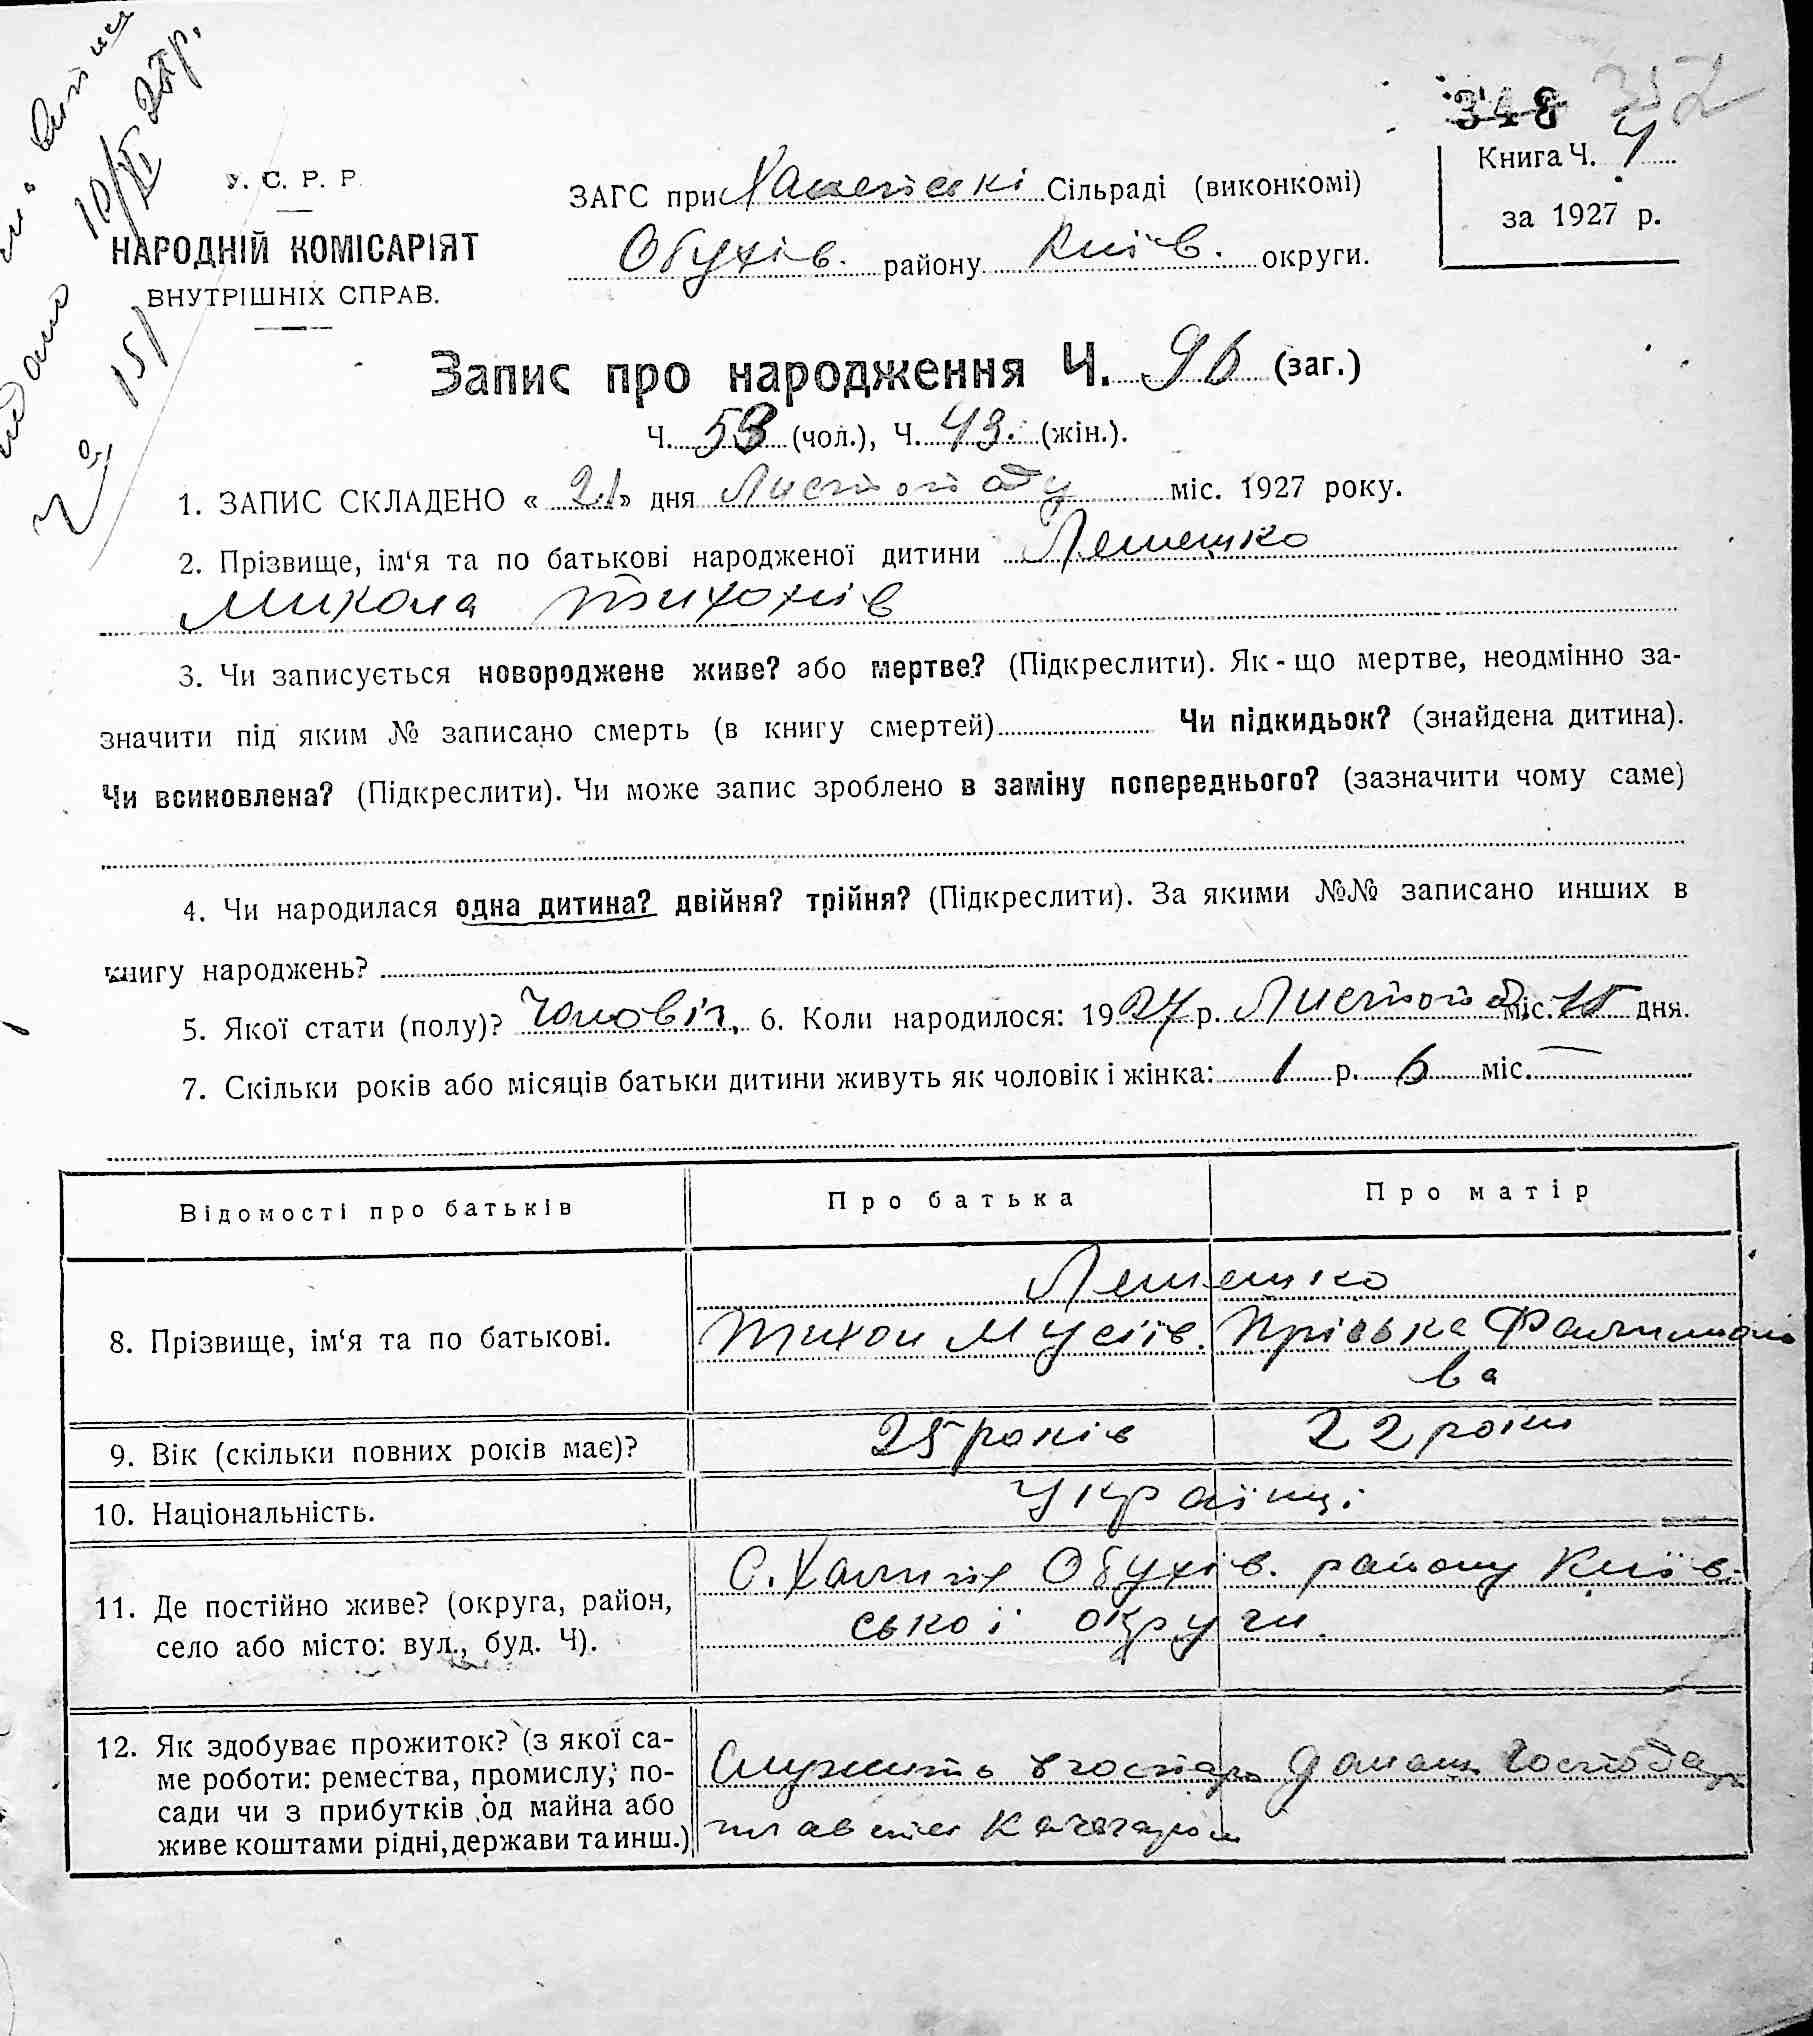 10/XI 27р.
№ 151
348 352
У. С. Р. Р.
НАРОДНІЙ КОМІСАРІЯТ
ВНУТРІШНІХ СПРАВ.
ЗАГС при Сільраді (виконкомі)
Обухів. району Київ. округи.
Книга Ч. 4
за 1927 р.
Запис про народження Ч. 96 (заг.)
Ч. 53 (чол.), Ч. 43. (жін.).
1. ЗАПИС СКЛАДЕНО « 21 » дня Листопаду міс. 1927 року.
2. Прізвище, ім‘я та по батькові народженої дитини Лемешко
Микола Тихонів
3. Чи записується новороджене живе? або мертве? (Підкреслити). Як-що мертве, неодмінно за-
значити під яким № записано смерть (в книгу смертей) Чи підкидьок? (знайдена дитина).
Чи всиновлена? (Підкреслити). Чи може запис зроблено в заміну попереднього? (зазначити чому саме)
4. Чи народилася одна дитина? двійня? трійня? (Підкреслити). За якими №№ записано инших в
книгу народжень?
5. Якої стати (полу)? Чоловіч. 6. Коли народилося: 1927 р. Листопад міс. 15 дня.
7. Скільки років або місяців батьки дитини живуть як чоловік і жінка: 1 р. 6 міс. —
Відомості про батьків Про батька Про матір
8. Прізвище, ім‘я та по батькові. Лемешко
Тихон Мусіїв. Пріська
ва
9. Вік (скільки повних років має)? 25 років 22 роки
10. Національність. Українці
11. Де постійно живе? (округа, район,
село або місто: вул., буд. Ч).
С. Халипя Обухів. району Київ-
ської округи.
12. Як здобуває прожиток? (з якої са-
ме роботи: ремества, промислу, по-
сади чи з прибутків од майна або
живе коштами рідні, держави та инш.)
Служить в Домаш. Господар